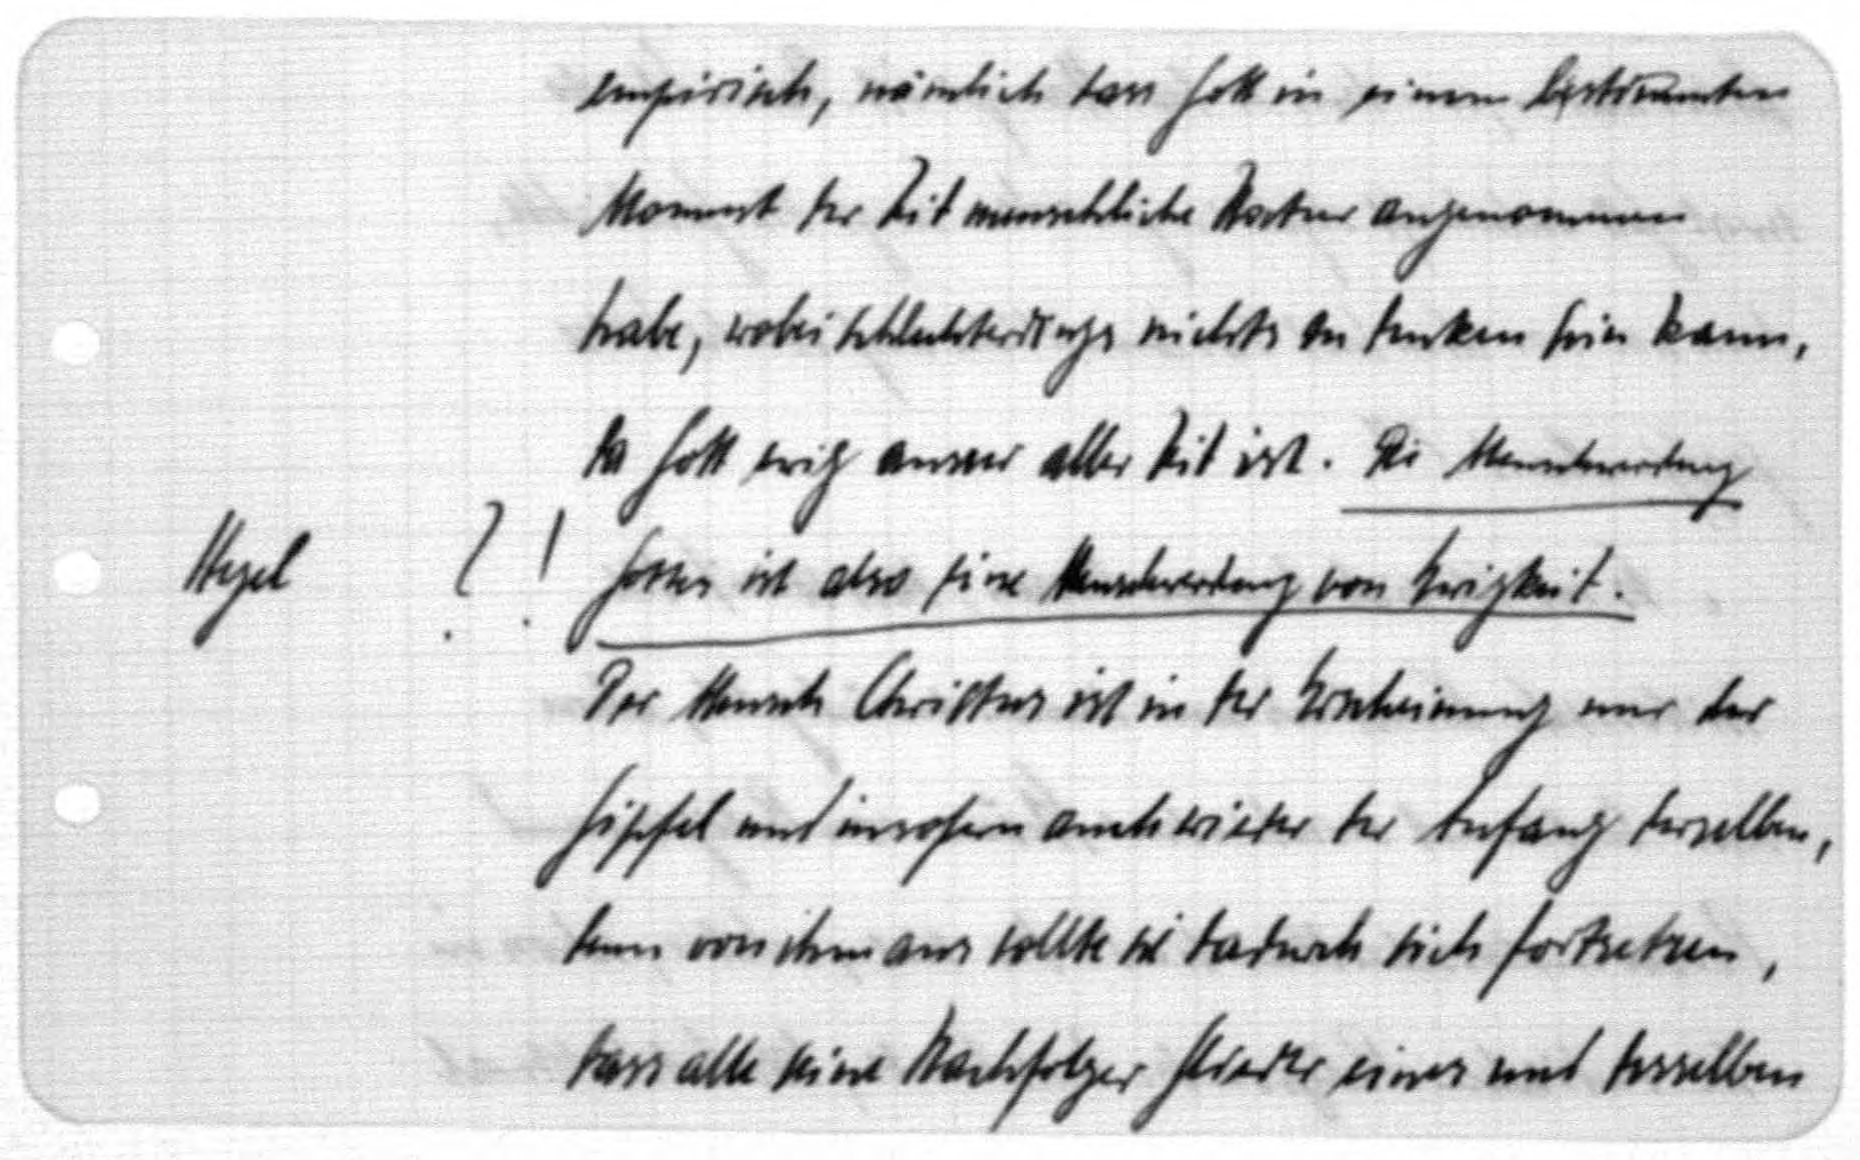 empirisch, nämlich dass Gott in einem bestimmten
Moment der Zeit menschliche Natur angenommen
habe, wobei schlechterdings nichts zu denken sein kann,
da Gott ewig ausser aller Zeit ist. Die Menschwerdung
Hegel ?! Gottes ist also eine Menschwerdung von Ewigkeit.
Der Mensch Christus ist in der Erscheinung nur der
Gipfel und insofern auch wieder der Anfang derselben,
denn von ihm aus sollte sie dadurch sich fortsetzen,
dass alle seine Nachfolger Glieder eines und desselben